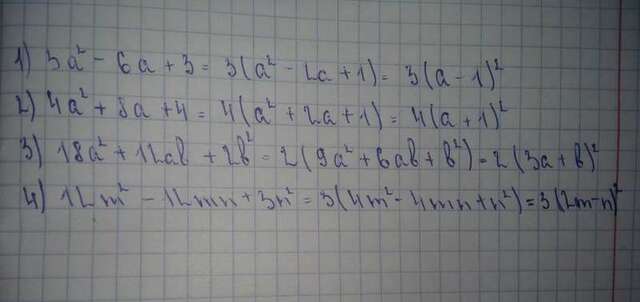 1) 3a² - 6a + 3 = 3(a² - 2a + 1) = 3(a - 1)²
2) 4a² + 8a + 4 = 4(a² + 2a + 1) = 4(a + 1)²
3) 18a² + 12ab + 2b² = 2(9a² + 6ab + b²) = 2(3a + b)²
4) 12m² - 12mn + 3n² = 3(4m² - 4mn + n²) = 3(2m - n)²